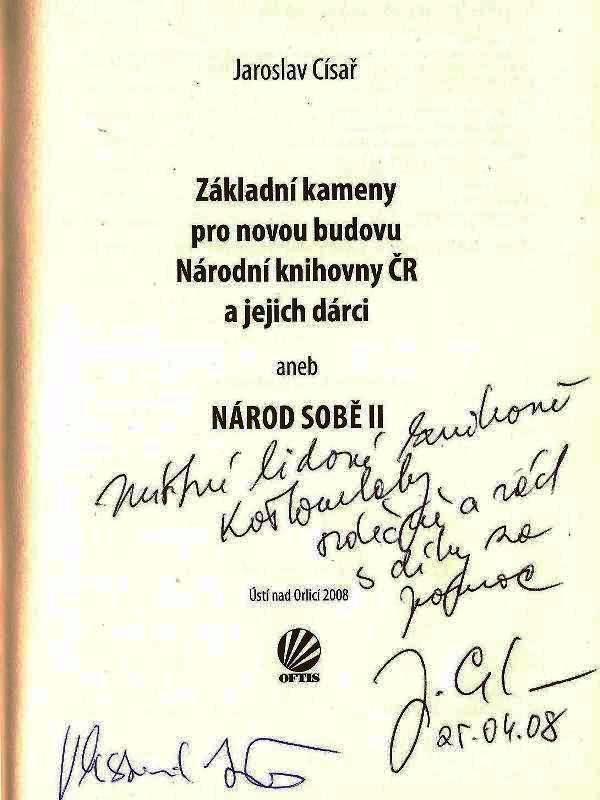 Jaroslav Císař
Základní kameny
pro novou budovu
Národní knihovny ČR
a jejich dárci
aneb
NÁROD SOBĚ II
Místní lidové knihovně
Kostomlaty
srdečně a rád
s díky za
pomoc
Ústí nad Orlicí 2008
OFTIS
25.04.08